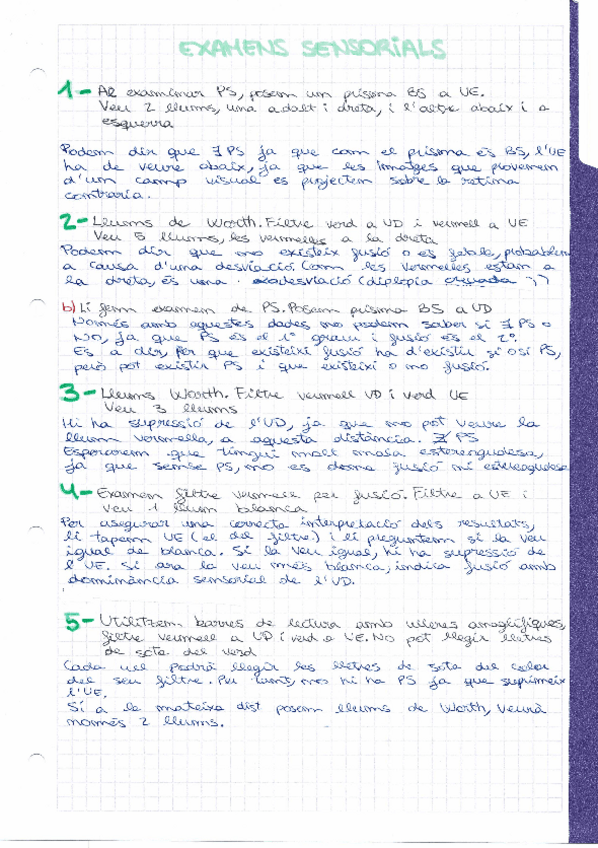 EXAMENS SENSORIALS
1- Al examinar PS, posem un prisma BS a UE.
Veu 2 llums, una a dalt i dreta, i l'altre abaix i a
esquerra
Podem dir que ∃ PS ja que com el prisma és BS, l'UE
ha de veure abaix, ja que les imatges que provenen
d'un camp visual es projecten sobre la retina
contraria.
2- Llums de Worth. Filtre verd a UD i vermell a UE
Veu 5 llums, les vermelles a la dreta
Podem dir que no existeix fusió o es feble, probablem
a causa d'una desviació. Com les vermelles estan a
la dreta, és una exodesviació (diplopia creuada
b) Li fem examen de PS. Posem prisma BS a UD
Només amb aquestes dades no podem saber si ∃ PS o
No, ja que PS és el 1º grau i fusió és el 2º.
Es a dir, per que existeixi fusió ha d'existir si o si PS,
però pot existir PS i que existeixi o no fusió.
3- Llums Worth. Filtre vermell UD i verd UE
Veu 3 llums
Hi ha supressió de l'UD, ja que no pot veure la
llum vermella, a aquesta distància. ∄ PS
Esperarem que tingui molt mala estereoagudesa,
ja que sense PS, no es dona fusió ni estereoagudesa
4- Examen filtre vermell per fusió. Filtre a UE i
veu 1 llum blanca
Per asegurar una correcta interpretació dels resultats,
li tapem UE (el del filtre) i li preguntem si la veu
igual de blanca. Si la veu igual, hi ha supressió de
l'UE. Si ara la veu més blanca, indica fusió amb
dominància sensorial de l'UD.
5- Utilitzem barres de lectura amb ulleres anaglífiques,
filtre vermell a UD i verd a UE. No pot llegir lletres
de sota del verd
Cada ull podrà llegir les lletres de sota del color
del seu filtre. Per tant, no hi ha PS ja que suprimeix
l'UE.
Si a la mateixa dist posem llums de Worth, veurà
només 2 llums.